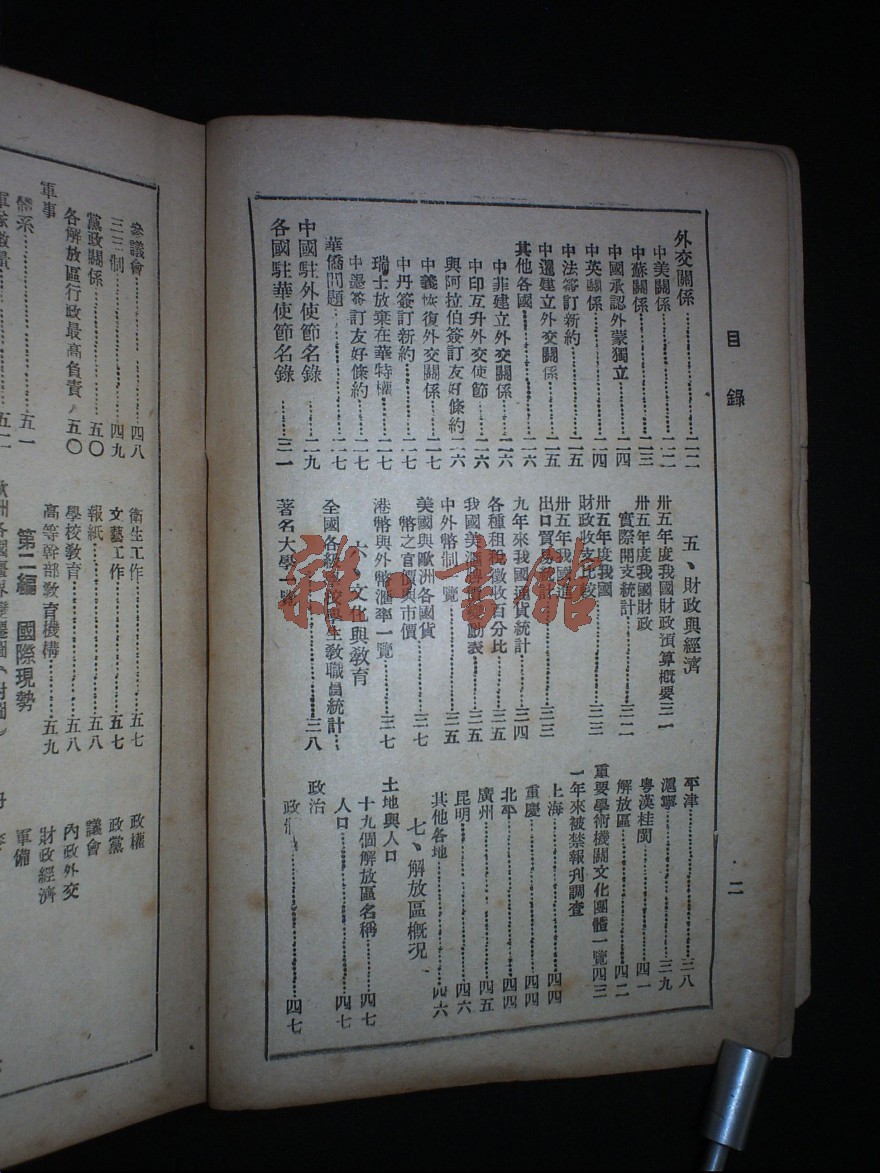 目錄
二
外交關係……二二
中美關係……二二
中蘇關係……二三
中國承認外蒙獨立……二四
中英關係……二四
中法簽訂新約……二五
中暹建立外交關係……二五
其他各國……二六
中菲建立外交關係……二六
中印互升外交使節……二六
與阿拉伯簽訂友好條約二六
中義恢復外交關係……二七
中丹簽訂新約……二七
瑞士放棄在華特權……二七
中墨簽訂友好條約……二七
華僑問題……二七
中國駐外使節名錄……二九
各國駐華使節名錄……三一
五、財政與經濟
卅五年度我國財政預算概要三一
卅五年度我國財政
實際開支統計……三二
卅五年度我國
財政收支比較……三三
卅五年我國進
出口貿易統計……三三
九年來我國通貨統計……三四
各種租稅徵收百分比……三五
我國美匯變動表……三五
中外幣制一覽……三五
美國與歐洲各國貨
幣之官價與市價……三七
港幣與外幣滙率一覽……三七
六、文化與教育
全國各級學校學生教職員統計…
著名大學一覽……三八
平津……三八
滬寧……三九
粵漢桂閩……四一
解放區……四二
重要學術機關文化團體一覽四三
一年來被禁報刊調查
上海……四四
重慶……四四
北平……四四
廣州……四五
昆明……四六
其他各地……四六
七、解放區概況
土地與人口
十九個解放區名稱……四七
人口……四七
政治
政……四七
參議會……四八
三三制……四九
黨政關係……五〇
各解放區行政最高負責人五〇
軍事
體系……五一
軍隊數量……五一
衛生工作……五七
文藝工作……五七
報紙……五八
學校教育……五八
高等幹部教育機構……五九
第二編 國際現勢
政權
政黨
議會
內政外交
財政經濟
軍備
雜·書館